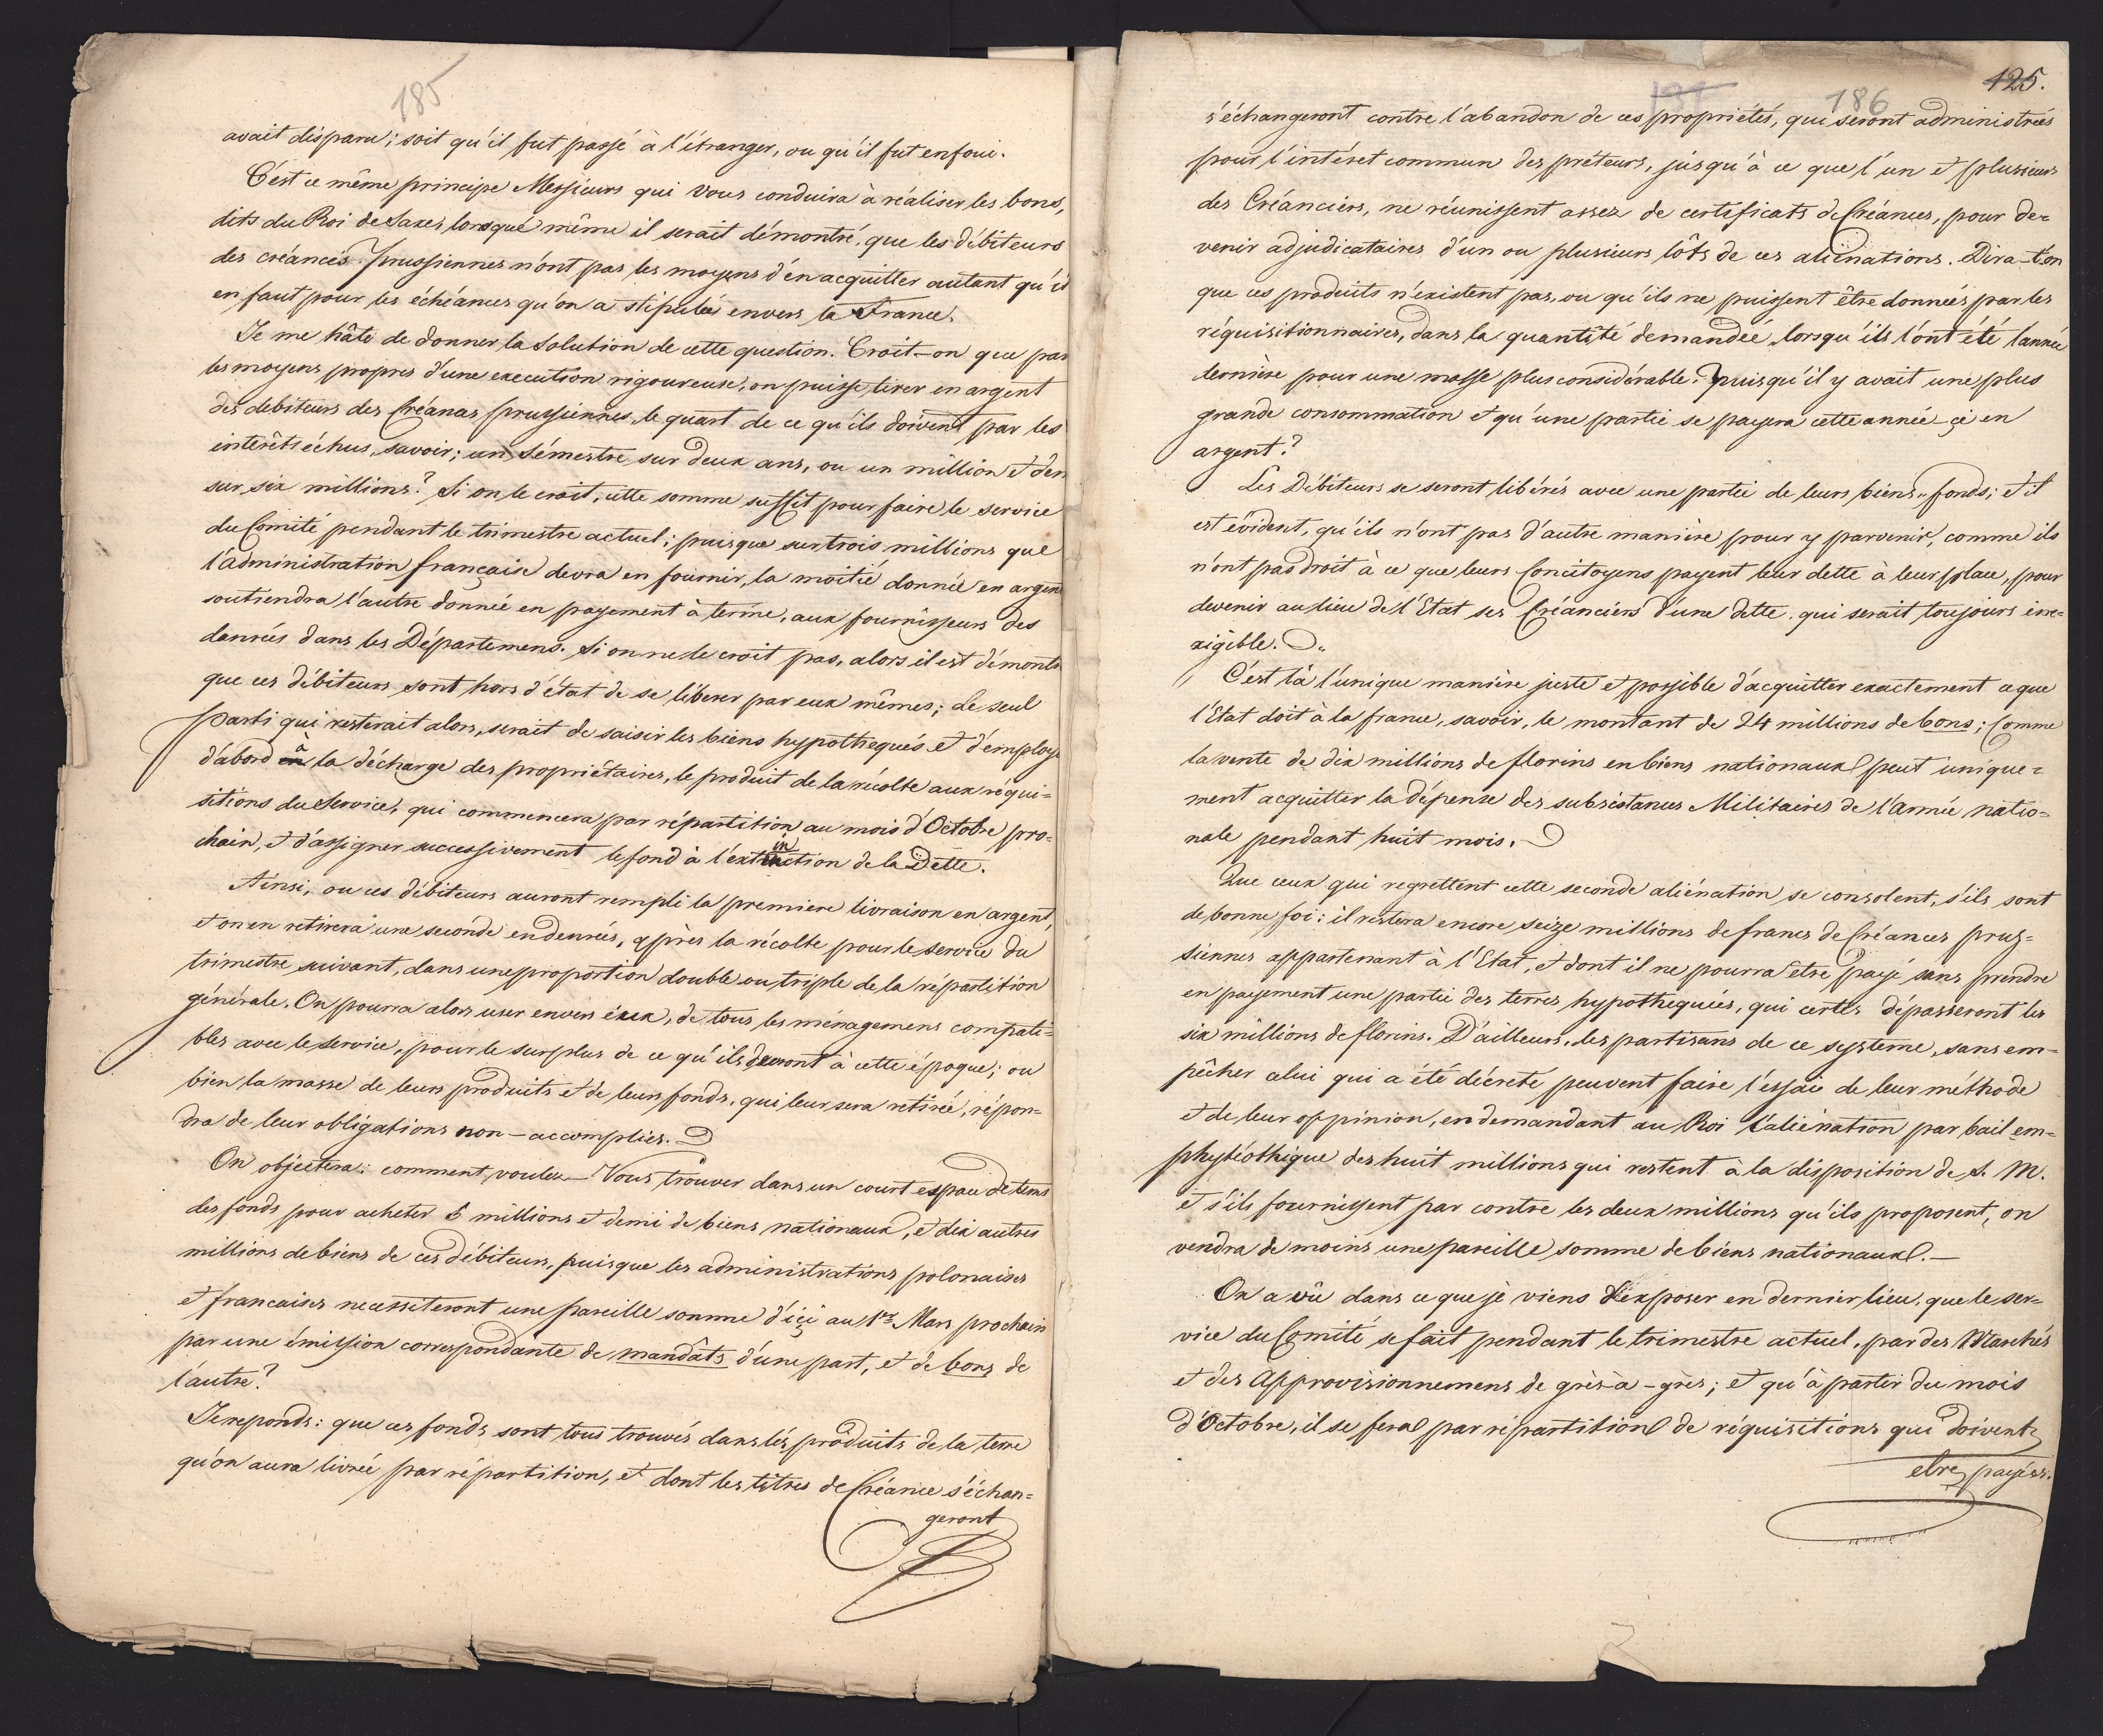 185
avait disparu; soit qu'il fut passé à l'étranger, ou qu'il fut enfoui.
C'est ce même principe Messieurs qui vous conduira à réaliser les bons,
dits du Roi de Saxe, lorsque même il serait démontré, que les débiteurs
des créances Prussiennes n'ont pas les moyens d'en acquitter autant qu'il
en faut pour les échéances qu'on a stipulées envers la France.
Je me hâte de donner la solution de cette question. Croit-on que par
les moyens propres d'une execution rigoureuse, on puisse tirer en argent
des debiteurs des Créances prussiennes, le quart de ce qu'ils doivent par les
interêts échus, savoir; un sémestre sur deux ans, ou un million et dem
sur six millions? Si on le croit, cette somme suffit pour faire le service
du Comité pendant le trimestre actuel; puisque sur trois millions que
l'administration française devra en fournir, la moitié donnée en argent
soutiendra l'autre donnée en payement à terme, aux fournisseurs des
denrées dans les Départemens. Si on ne le croit pas, alors il est démontr
que ces débiteurs sont hors d'état de se libérer par eux mêmes; Le seul
parti qui resterait alors, serait de saisir les biens hypothequés et d'employe
d'abord à la décharge des propriétaires, le produit de la récolte aux réqui=
sitions du Service, qui commencera par répartition au mois d'Octobre pro=
chain, et d'assigner successivement le fond à l'extinction de la Dette.
Ainsi, ou ces débiteurs auront rempli la premiere livraison en argent,
et on en retirera une seconde en denrées, après la récolte pour le service du
trimestre suivant, dans une proportion double ou triple de la répartition
générale. On pourra alors user envers eux, de tous les ménagemens compati=
bles avec le service, pour le surplus de ce qu'ils devront à cette époque; ou
bien la masse de leurs produits et de leurs fonds, qui leur sera retirée, répon=
dra de leur obligations non-accomplies.
On objectera: comment voulez-Vous trouver dans un court espace de tems
des fonds pour acheter 6 millions et demi de biens nationaux, et dix autres
millions de biens de ces débiteurs, puisque les administrations polonaises
et francaises necessiteront une pareille somme d'içi au 1er Mars prochain
par une émission correspondante de mandâts d'une part, et de bons de
l'autre?
Je reponds: que ces fonds sont tous trouvés dans les produits de la terre
qu'on aura livrée par répartition, et dont les titres de Créance s'échan=
geront
125.
131
186
s'échangeront contre l'abandon de ces propriétés, qui seront administrées
pour l'intéret commun des prêteurs, jusqu'à ce que l'un et plusieurs
des Créanciers, ne réunissent assez de certificats de Créances, pour de=
venir adjudicataires d'un ou plusieurs lôts de ces aliénations. Dira-t-on
que ces produits n'existent pas, ou qu'ils ne puissent être donnés par les
réquisitionnaires, dans la quantité demandée, lorsqu'ils l'ont été l'année
dernière pour une masse plus considérable, puisqu'il y avait une plus
grande consommation et qu'une partie se payera cette année-çi en
argent?
Les Débiteurs se seront libérés avec une partie de leurs biens-fonds; et il
est évident, qu'ils n'ont pas d'autre manière pour y parvenir, comme ils
n'ont pas droit à ce que leurs Concitoyens payent leur dette à leur place, pour
devenir au lieu de l'Etat ses Créanciers d'une dette qui serait toujours ine=
xigible.
C'est là l'unique manière juste et possible d'acquitter exactement ce que
l'Etat doit à la france, savoir, le montant de 24 millions de bons; Comme
la vente de dix millions de florins en biens nationaux peut unique=
ment acquitter la dépense des subsistances Militaires de l'armée natio=
nale pendant huit mois.
Que ceux qui regrettent cette seconde aliénation se consolent, s'ils sont
de bonne foi: il restera encore seize millions de francs de Créances prus=
siennes appartenant à l'Etat, et dont il ne pourra etre payé sans prendre
en payement une partie des terres hypothequées, qui certes dépasseront les
six millions de florins. D'ailleurs, les partisans de ce systeme, sans em=
pêcher celui qui a été décreté peuvent faire l'essai de leur méthode
et de leur oppinion, en demandant au Roi l'aliénation par bail em=
phytéothique des huit millions qui restent à la disposition de S. M.
et s'ils fournissent par contre les deux millions qu'ils proposent, on
vendra de moins une pareille somme de biens nationaux.
On a vû dans ce que je viens d'exposer en dernier lieu, que le ser=
vice du Comité se fait pendant le trimestre actuel, par des Marchés
et des Approvisionnemens de grès-à-grès; et qu'à partir du mois
d'Octobre, il se fera par répartition de réquisitions qui doivent
etre payées.